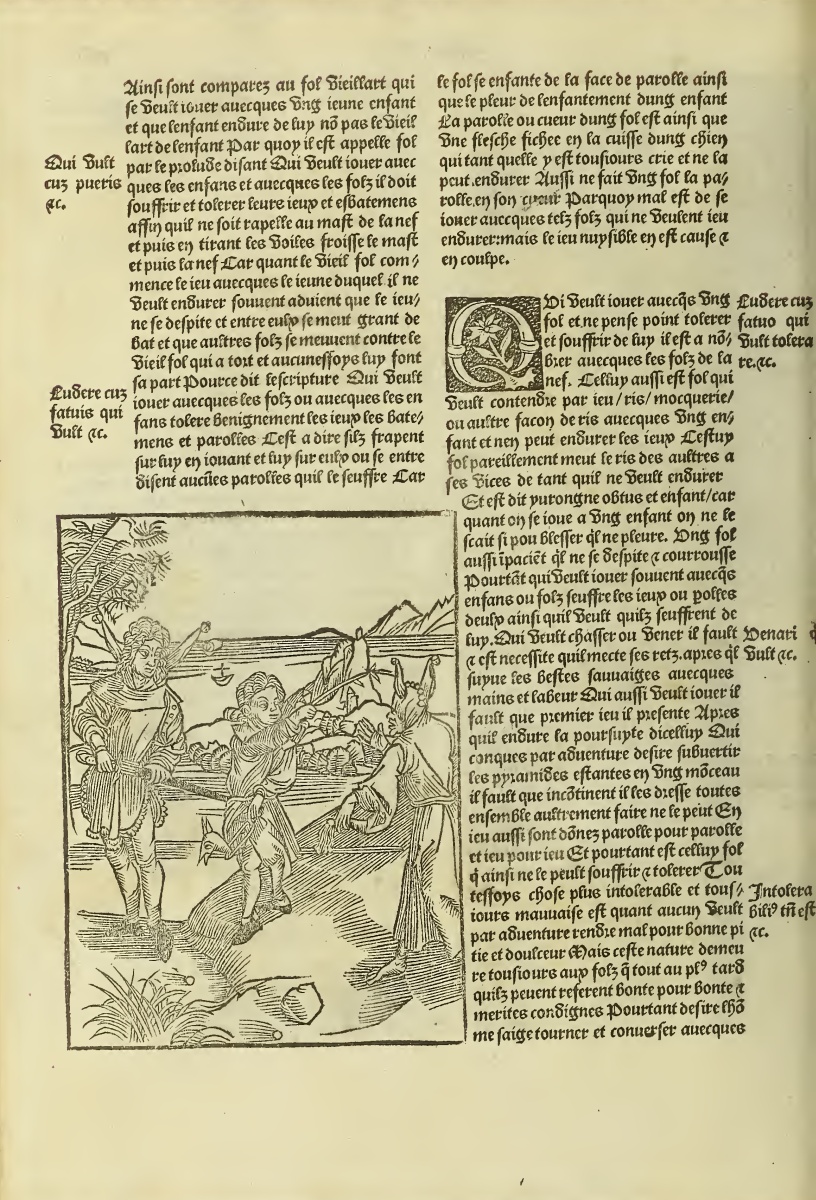 Ainsi sont comparez au fol vieillart qui
se veult iouer auecques vng ieune enfant
et que lenfant endure de luy nõ pas le vieil
lart de lenfant Par quoy il est appelle fol
par le prolude disant Qui veult iouer auec
ques les enfans et auecques les folz il doit
souffrir et tolerer leurs ieux et esbatemens
affin quil ne soit rapelle au mast de la nef
et puis en tirant les voiles froisse le mast
et puis la nef Car quant le vieil fol com/
mence le ieu auecques le ieune duquel il ne
veult endurer souuent aduient que le ieu/
ne se despite et entre eulx se meut grant de
bat et que aultres folz se meuuent contre le
vieil fol qui a tort et aucuneffoys luy font
sa part Pource dit lescripture Qui veult
iouer auecques les folz ou auecques les en
fans tolere benignement les ieux les bate/
mens et parolles Cest a dire silz frapent
sur luy en iouant et luy sur eulx ou se entre
disent aucũes parolles quil le seuffre Car
Qui vult
cuz pueris
⁊c.
Ludere cuz
fatuis qui
vult ⁊c.
le fol se enfante de la face de parolle ainsi
que le pleur de lenfantement dung enfant
La parolle ou cueur dung fol est ainsi que
vne flesche fichee en la cuisse dung chien
qui tant quelle y est tousiours crie et ne la
peut endurer Aussi ne fait vng fol la pa/
rolle en son cueur Parquoy mal est de se
iouer auecques telz folz qui ne veulent ieu
endurer: mais le ieu nuysible en est cause ⁊
en coulpe.
QVi veult iouer auecq̃s vng
fol et ne pense point tolerer
et souffrir de luy il est a nõ/
brer auecques les folz de la
nef. Celluy aussi est fol qui
veult contendre par ieu/ ris/ mocquerie/
ou aultre facon de ris auecques vng en/
fant et nen peut endurer les ieux Cestuy
fol pareillement meut le ris des aultres a
ses vices de tant quil ne veult endurer
Et est dit yurongne obtus et enfant/ car
quant on se ioue a vng enfant on ne le
scait si pou blesser q̃l ne pleure. Vng fol
aussi ĩpaciẽt q̃l ne se despite ⁊ courrousse
Pourtãt qui veult iouer souuent auecq̃s
enfans ou folz seuffre les ieux ou polles
deulx ainsi quil veult quilz seuffrent de
luy. Qui veult chasser ou vener il fault
⁊ est necessite quil mecte ses retz. apres q̃l
suyue les bestes sauuaiges auecques
mains et labeur Qui aussi veult iouer il
fault que premier ieu il presente Apres
quil endure la poursuyte dicelluy Qui
conques par aduenture desire subuertir
les pyramides estantes en vng mõceau
il fault que incõtinent il les dresse toutes
ensemble aultrement faire ne le peut En
ieu aussi sont dõnez parolle pour parolle
et ieu pour ieu Et pourtant est celluy fol
q̃ ainsi ne le peult souffrir ⁊ tolerer Tou
teffoys chose plus intolerable et tous/
iours mauuaise est quant aucun veult
par aduenture rendre mal pour bonne pi
tie et doulceur Mais ceste nature demeu
re tousiours aux folz q̃ tout au plꝰ tard
quilz peuent referent bonte pour bonte ⁊
merites condignes Pourtant desire lhõ
me saige tourner et conuerser auecques
Ludere cuz
fatuo qui
vult tolera
re. ⁊c.
Venari q̃
vult ⁊c.
Intolera
bilꝰ tñ est
⁊c.